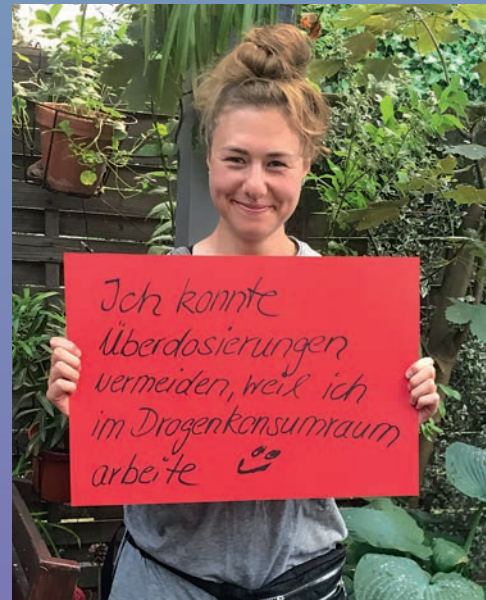 Ich konnte
Überdosierungen
vermeiden, weil ich
im Drogenkonsumraum
arbeite